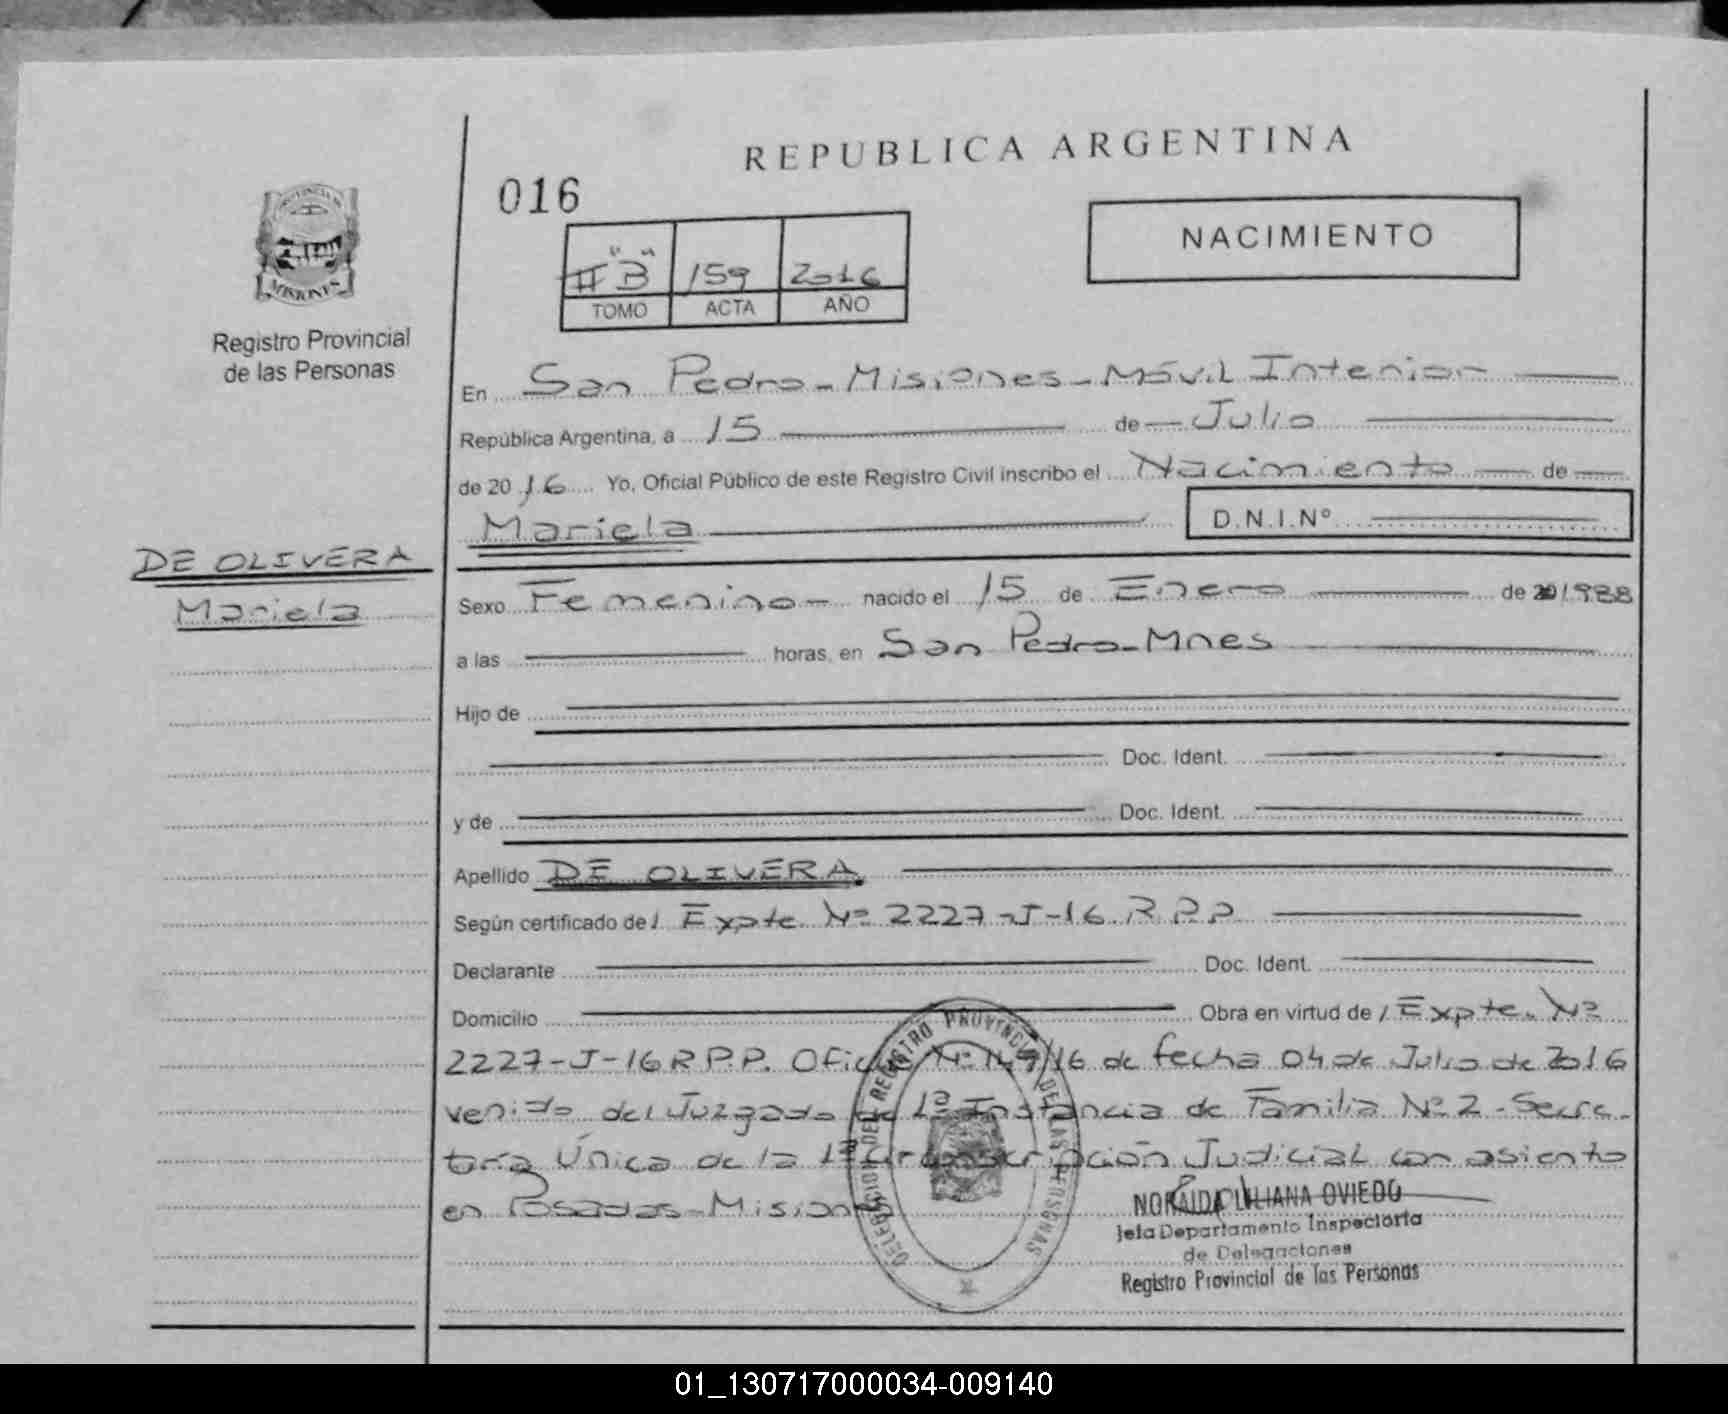 REPUBLICA ARGENTINA
016
NACIMIENTO
PROVINCIA DE
MISIONES
II "B" 159 2016
TOMO ACTA AÑO
Registro Provincial
de las Personas
En San Pedro - Misiones - Móvil Interior
República Argentina, a 15 de Julio
de 2016 Yo, Oficial Público de este Registro Civil inscribo el Nacimiento de
Mariela D.N.I.Nº
DE OLIVERA
Mariela
Sexo Femenino - nacido el 15 de Enero de 20 1988
a las horas, en San Pedro - Mnes
Hijo de
Doc. Ident.
y de Doc. Ident.
Apellido DE OLIVERA
Según certificado de / Expte. Nº 2227-J-16 R.P.P
Declarante Doc. Ident.
Domicilio Obra en virtud de / Expte. Nº
2227-J-16 R.P.P. Oficio Nº 149/16 de fecha 04 de Julio de 2016
venido del Juzgado de 1ª Instancia de Familia Nº 2 - Secre-
taría Única de la 1ª Circunscripción Judicial con asiento
en Posadas - Misiones
DELEGACION DEL REGISTRO PROVINCIAL DE LAS PERSONAS
NORAIDA LILIANA OVIEDO
Jefa Departamento Inspectoría
de Delegaciones
Registro Provincial de las Personas
01_130717000034-009140